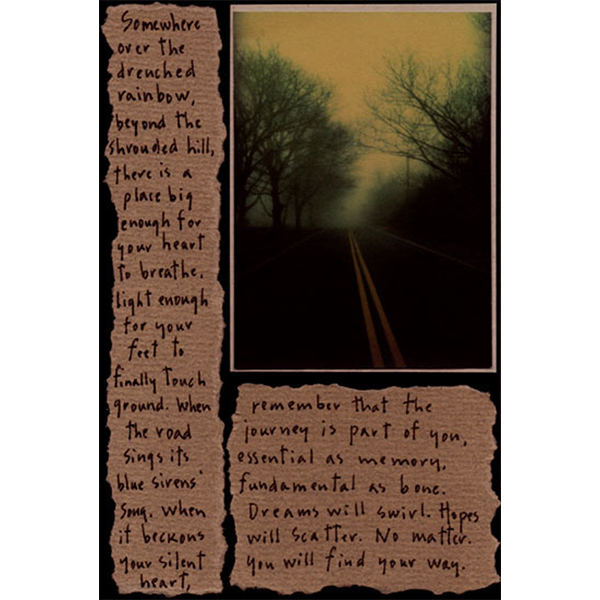 Somewhere
over the
drenched
rainbow,
beyond the
shrouded hill,
there is a
place big
enough for
your heart
to breathe,
light enough
for your
feet to
finally touch
ground. When
the road
sings its
blue sirens'
song, when
it beckons
your silent
heart,
remember that the
journey is part of you,
essential as memory,
fundamental as bone.
Dreams will swirl. Hopes
will scatter. No matter.
You will find your way.